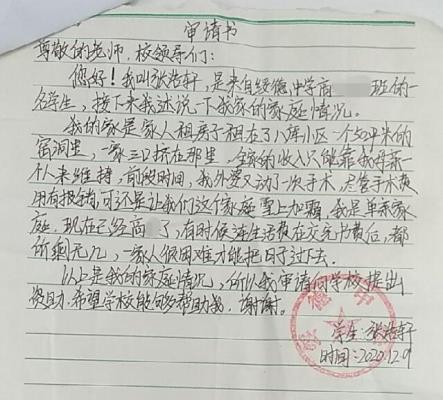 申请书
尊敬的老师，校领导们：
您好！我叫张浩轩，是来自绥德中学高 班的一
名学生，接下来我述说一下我家的家庭情况。
我的家是家人租房子租在了八库小区一个50平米的
窑洞里，一家三口挤在那里，全家的收入只能靠我母亲一
个人来维持，前段时间，我外婆又动了一次手术，尽管手术费
用有报销，可还是让我们这个家庭雪上加霜，我是单亲家
庭，现在已经高 了，有时候连生活费在交完书费后，都
所剩无几，一家人很困难才能把日子过下去。
以上是我的家庭情况，所以我申请向学校提出
资助，希望学校能够帮助我，谢谢。
学生：张浩轩
时间：2020.12.9